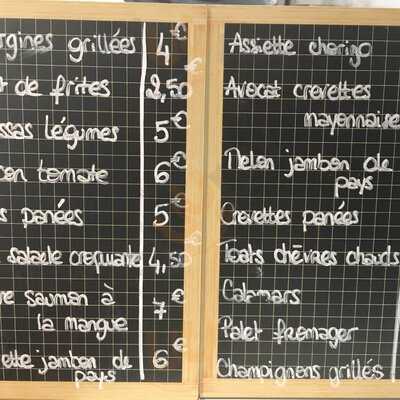 rgines grillées 4€
t de frites 2,50€
ssas légumes 5€
on tomate 6€
s panées 5€
salade croquante 4,50€
re saumon à
la mangue 7€
ette jambon de
pays 6€
Assiette chorizo
Avocat crevettes
mayonnaise
Melon jambon de
pays
Crevettes panées
Toats chèvres chauds
Calamars
Palet fromager
Champignons grillés